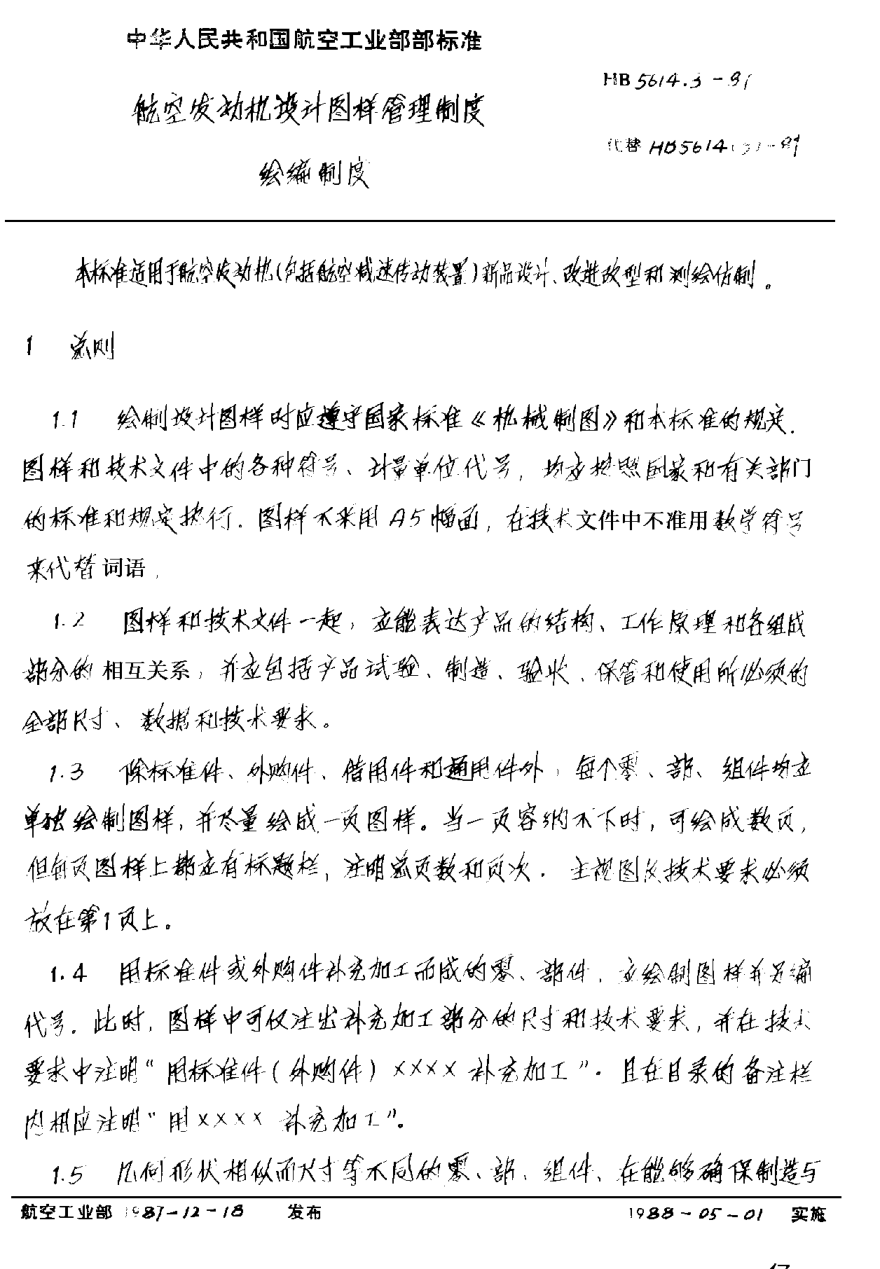 中华人民共和国航空工业部部标准
HB 5614.3 -
航空发动机设计图样管理制度
代替 HB5614
绘编制度
本标准适用于航空发动机(包括航空减速传动装置)新品设计、改进改型和测绘仿制。
1 总则
1.1 绘制设计图样时应遵守国家标准《机械制图》和本标准的规定.
图样和技术文件中的各种符号、计量单位代号,均应按照国家和有关部门
的标准和规定执行.图样不采用A5幅面,在技术文件中不准用数学符号
来代替词语.
1.2 图样和技术文件一起,应能表达产品的结构、工作原理和各组成
部分的相互关系,并应包括产品试验、制造、验收、保管和使用所必须的
全部尺寸、数据和技术要求。
1.3 除标准件、外购件、借用件和通用件外,每个零、部、组件均应
单独绘制图样,并尽量绘成一页图样。当一页容纳不下时,可绘成数页,
但每页图样上都应有标题栏,注明总页数和页次.主视图及技术要求必须
放在第1页上。
1.4 用标准件或外购件补充加工而成的零、部件,应绘制图样并另编
代号.此时,图样中可仅注出补充加工部分的尺寸和技术要求,并在技术
要求中注明“用标准件(外购件)×××× 补充加工”.且在目录的备注栏
内相应注明“用×××× 补充加工”。
1.5 几何形状相似而尺寸等不同的零、部、组件、在能够确保制造与
航空工业部 1987-12-18 发布 1988-05-01 实施